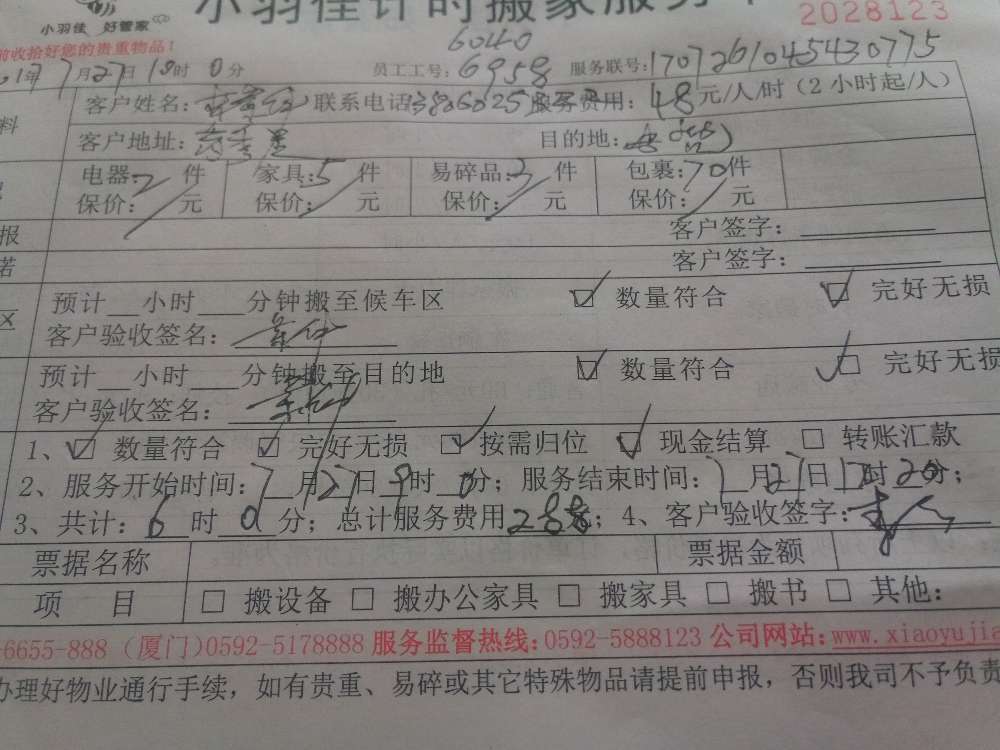 小羽佳计时搬家服务
小羽佳 好管家
2028123
前收拾好您的贵重物品!
6040
年7月27日 时0分 员工工号:6958 服务联号:1707261045430775
客户姓名: 联系电话 服务费用:48元/人/时(2小时起/人)
客户地址: 目的地:
电器:2件 家具:5件 易碎品:3件 包裹:70件
保价:/元 保价:/元 保价:/元 保价:/元
报 客户签字:
若 客户签字:
区 预计__小时___分钟搬至候车区 ☑ 数量符合 ☑ 完好无损
客户验收签名:
预计__小时___分钟搬至目的地 ☑ 数量符合 ☑ 完好无损
客户验收签名:
1、☑ 数量符合 ☑ 完好无损 ☑ 按需归位 ☑ 现金结算 □ 转账汇款
2、服务开始时间:7月27日9时0分;服务结束时间:7月27日17时20分;
3、共计:6时0分;总计服务费用288;4、客户验收签字:
票据名称 票据金额
项 目 □ 搬设备 □ 搬办公家具 □ 搬家具 □ 搬书 □ 其他:
-6655-888 (厦门)0592-5178888 服务监督热线:0592-5888123 公司网站:www.xiaoyujia
办理好物业通行手续,如有贵重、易碎或其它特殊物品请提前申报,否则我司不予负责